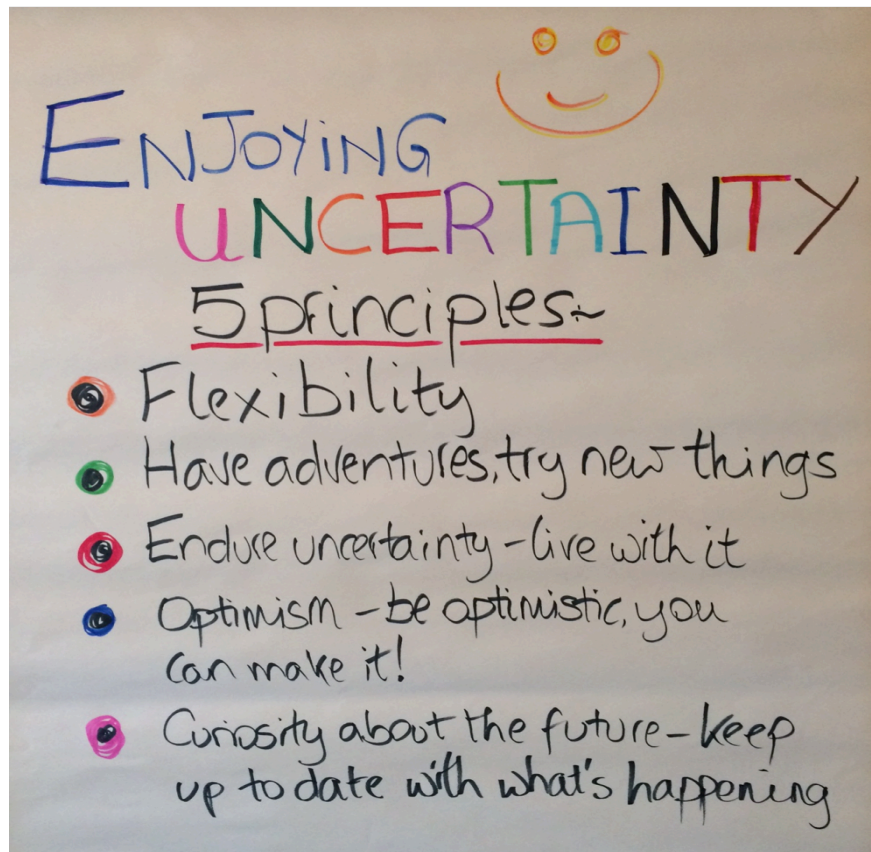 ENJOYING
UNCERTAINTY
5 principles~
Flexibility
Have adventures, try new things
Endure uncertainty - live with it
Optimism - be optimistic, you
can make it!
Curiosity about the future - keep
up to date with what's happening